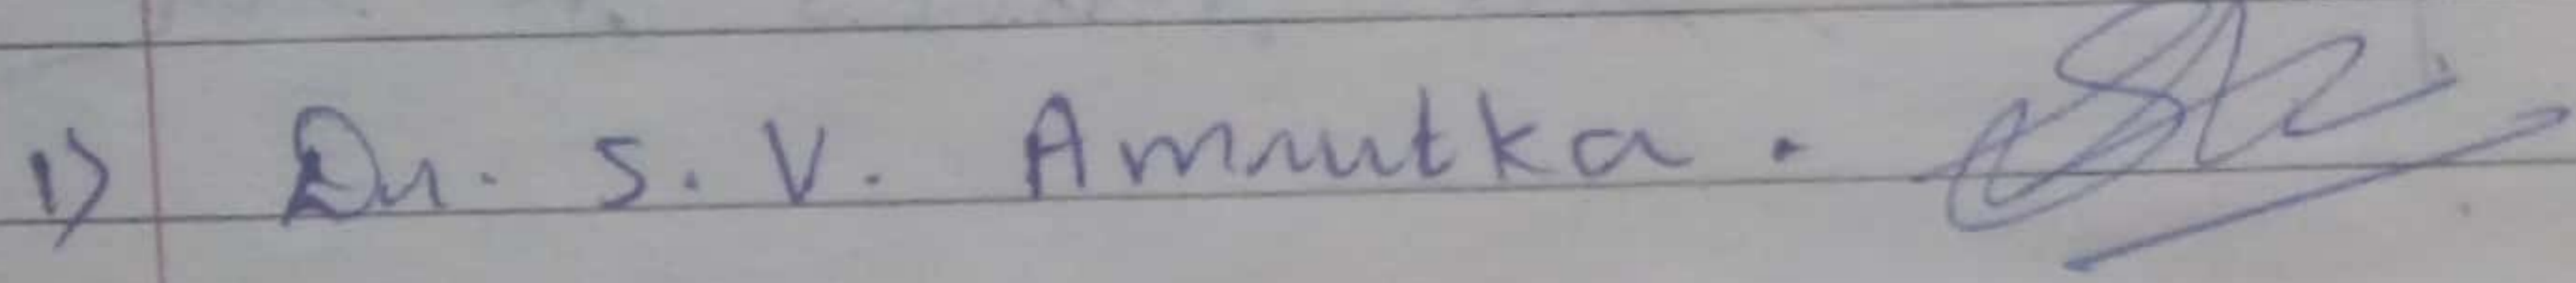 1) Dr. S. V. Amrutka.